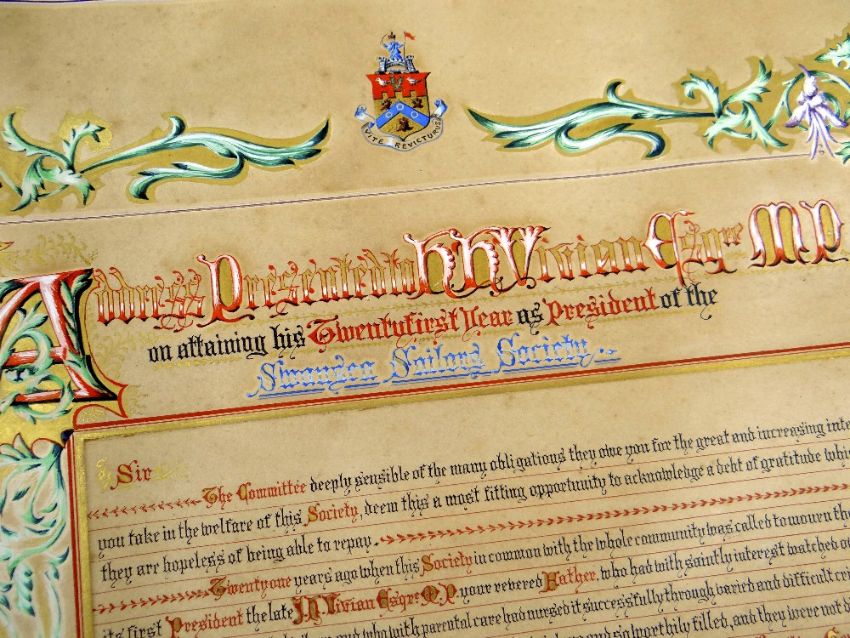 VITE REVICTURUS
Address Presented to H H Vivian Esqre M P
on attaining his Twentyfirst Year as President of the
Swansea Sailors Society
Sir
The Committee deeply sensible of the many obligations they owe you for the great and increasing inte
you take in the welfare of this Society, deem this a most fitting opportunity to acknowledge a debt of gratitude whi
they are hopeless of being able to repay.
Twentyone years ago when this Society in common with the whole community was called to mourn the
its first President the late J.H. Vivian Esqre M.P. your revered Father, who had with saintly interest watched o
and who with parental care had nursed it successfully through varied and difficult cri
and so worthily filled, and they were not d